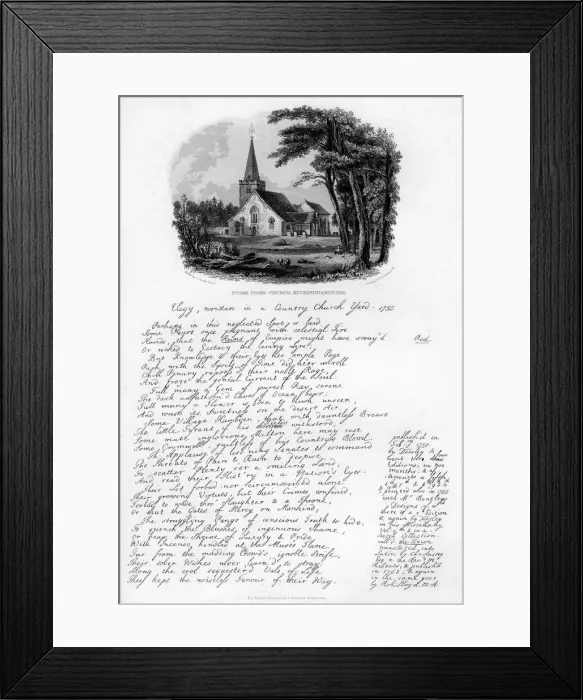 STOKE POGES CHURCH, BUCKINGHAMSHIRE.
Elegy, written in a Country Church Yard. 1750
Perhaps in this neglected Spot is laid
Some Heart once pregnant with celestial Fire
Hands, that the Reins of Empire might have sway'd
Rod.
Or waked to Ecstacy the living Lyre;
But Knowledge to their Eyes her ample Page
Rich with the Spoils of Time did ne'er unroll
Chill Penury repress'd their noble Rage,
And froze the genial Current of the Soul.
Full many a Gem of purest Ray serene
The dark unfathom'd Caves of Ocean bear:
Full many a Flower is born to blush unseen,
And waste its Sweetness on the desert Air
Some Village Hambden, that with dauntless Breast
The little Tyrant of his withstood,
Some mute inglorious Milton here may rest
Some Cromwell guiltless of his Country's Blood.
The Applause of list'ning Senates to command
The Threats of Pain & Ruin to despise,
To scatter Plenty o'er a smiling Land,
And read their Hist'ry in a Nation's Eyes
Their Lot forbad nor circumscribed alone
Their growing Virtues, but their Crimes confined,
Forbad to wade thro' Slaughter to a Throne,
Or shut the Gates of Mercy on Mankind,
The struggling Pangs of conscious Truth to hide,
To quench the Blushes of ingenuous Shame,
Or heap the Shrine of Luxury & Pride
With Incense, kindled at the Muse's Flame.
Far from the madding Crowd's ignoble Strife,
Their sober Wishes never learn'd to stray
Along the cool sequester'd Vale of Life
They kept the noiseless Tenour of their Way.
publish'd in
Feb. 1751
by Dodsley &
went thro' four
Editions, in two
months; &
afterwards a fifth
6th 7th & 8th 9th & 10th
printed also in 1753
with Mr Bentley's
Designs, of wch
there is a 2d Edition
& again by Dodsley
in his Miscellany,
Vol: 4th & in a
Scotch Collection
call'd the Union.
translated into
Latin by Chr: Anstey
Esq, & the Revd Mr
Roberts, & publish'd
in 1762; & again
in the same year
by Rob: Lloyd, M:A